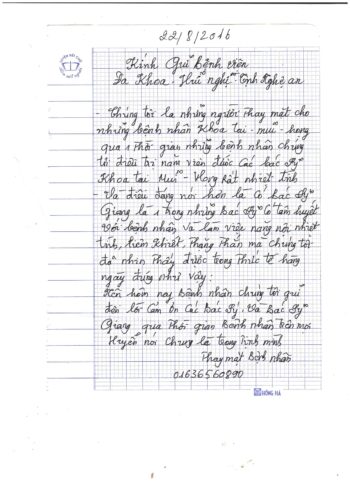 22/8/2016
Kính Gửi Bệnh viện
Đa Khoa Hữu nghị Tỉnh Nghệ an
- Chúng tôi là những người Thay mặt cho
những bệnh nhân Khoa tai - mũi - họng
qua 1 Thời gian những bệnh nhân chúng
tôi điều trị nằm viện được Các bác Sỹ
Khoa tai Mũi - Họng Rất nhiệt tình
- Và điều đáng nói hơn là Có Bác Sỹ
Giang là 1 trong những Bác Sỹ Có tâm huyết
Với bệnh nhân và làm việc năng nổi nhiệt
tình, liêm Khiết, Thẳng Thắn mà Chúng tôi
đã nhìn Thấy được trong Thức tế hàng
ngày đúng như vậy:
Nên hôm nay Bệnh nhân chúng tôi gửi
đến lời Cảm Ơn Các Bác Sỹ, Và Bác Sỹ
Giang qua Thời gian Bệnh nhân trên mọi
Huyện nói Chung là trong tỉnh mình
Thay mặt Bệnh nhân
01636560890
HỒNG HÀ